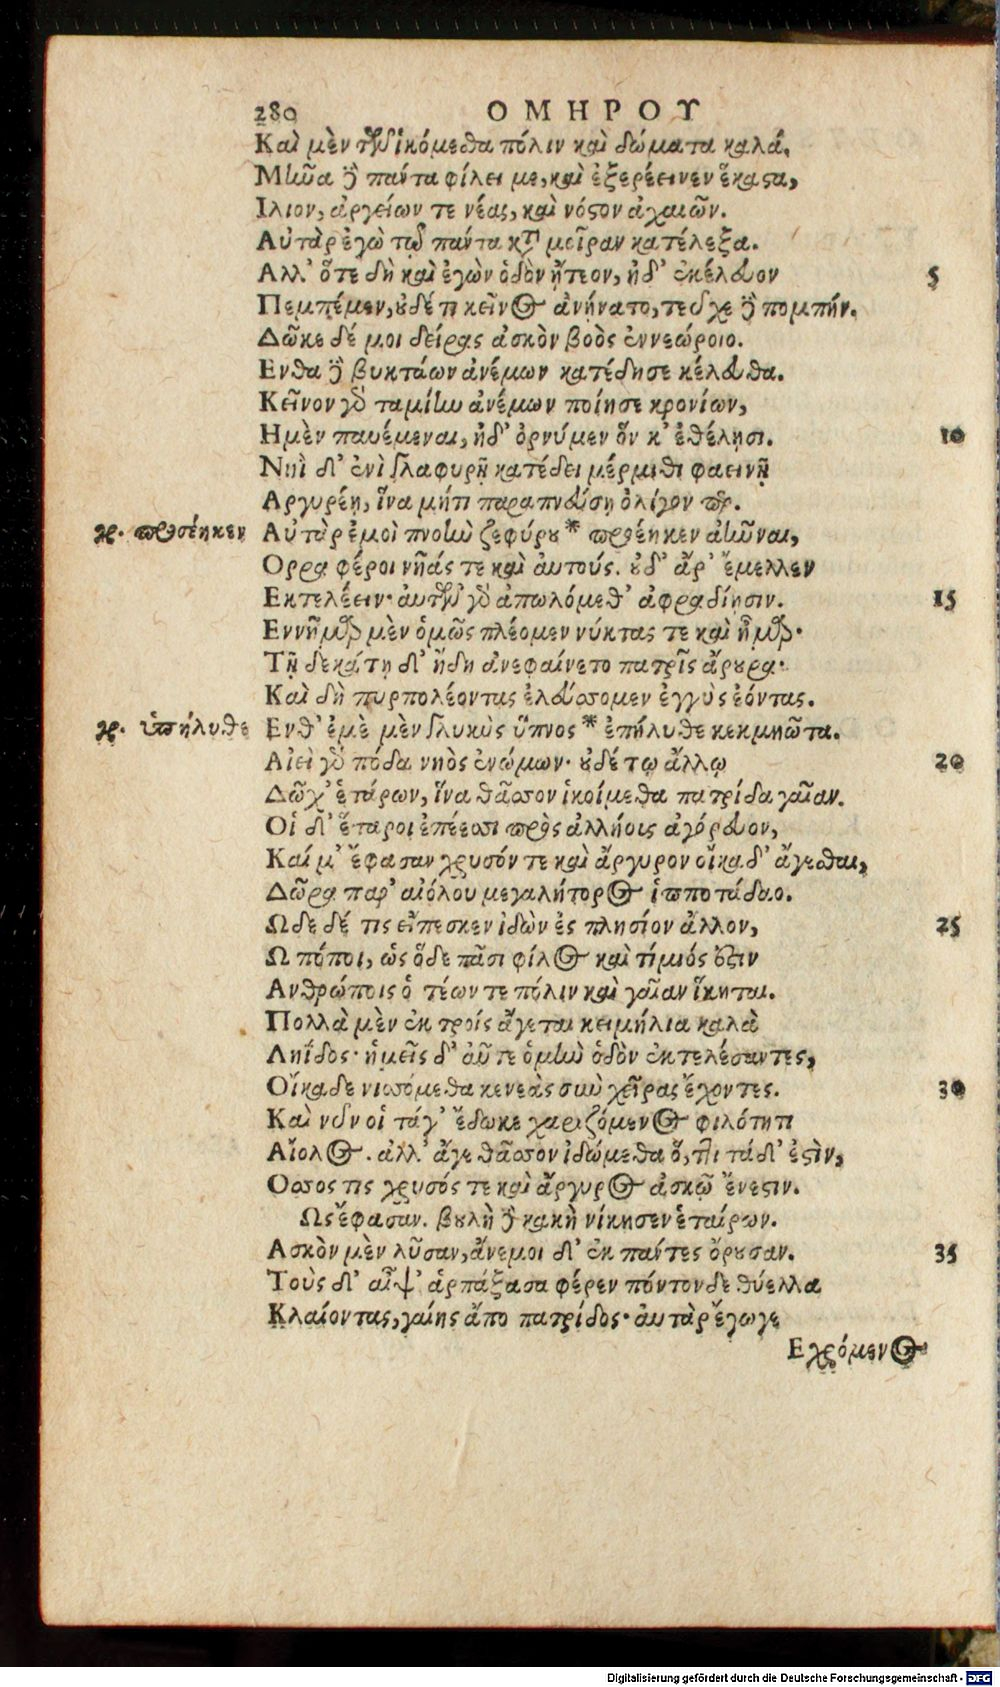 280 ΟΜΗΡΟΥ
Καὶ μὲν τῶν ἱκόμεθα πόλιν καὶ δώματα καλά.
Μῆνα δὲ πάντα φίλει με, καὶ ἐξερέεινεν ἕκαστα,
Ιλιον, ἀργείων τε νέας, καὶ νόστον ἀχαιῶν.
Αὐτὰρ ἐγὼ τῷ πάντα κατὰ μοῖραν κατέλεξα.
Αλλ' ὅτε δὴ καὶ ἐγὼν ὁδὸν ᾔτεον, ἠδ' ἐκέλευον 5
Πεμπέμεν, οὐδέ τι κεῖνος ἀνήνατο, τεῦχε δὲ πομπήν.
Δῶκε δέ μοι δείρας ἀσκὸν βοὸς ἐννεώροιο.
Ενθα δὲ βυκτάων ἀνέμων κατέδησε κέλευθα.
Κεῖνον γὰρ ταμίην ἀνέμων ποίησε κρονίων,
Ημὲν παυέμεναι, ἠδ' ὀρνύμεν ὅν κ' ἐθέλησι. 10
Νηῒ δ' ἐνὶ γλαφυρῇ κατέδει μέρμιθι φαεινῇ
Αργυρέῃ, ἵνα μήτι παραπνεύσῃ ὀλίγον περ.
γρ. προσέηκεν Αὐτὰρ ἐμοὶ πνοιὴν ζεφύρου * προέηκεν ἀῆναι,
Οφρα φέροι νῆάς τε καὶ αὐτούς. οὐδ' ἄρ' ἔμελλεν
Εκτελέειν· αὐτῶν γὰρ ἀπωλόμεθ' ἀφραδίῃσιν. 15
Εννῆμαρ μὲν ὁμῶς πλέομεν νύκτας τε καὶ ἦμαρ·
Τῇ δεκάτῃ δ' ἤδη ἀνεφαίνετο πατρὶς ἄρουρα·
Καὶ δὴ πυρπολέοντας ἐλεύσσομεν ἐγγὺς ἐόντας.
γρ. ὑπήλυθε Ενθ' ἐμὲ μὲν γλυκὺς ὕπνος * ἐπήλυθε κεκμηῶτα.
Αἰεὶ γὰρ πόδα νηὸς ἐνώμων· οὐδέ τῳ ἄλλῳ 20
Δῶχ' ἑτάρων, ἵνα θᾶσσον ἱκοίμεθα πατρίδα γαῖαν.
Οἱ δ' ἕταροι ἐπέεσσι πρὸς ἀλλήλοις ἀγόρευον,
Καί μ' ἔφασαν χρυσόν τε καὶ ἄργυρον οἴκαδ' ἄγεσθαι,
Δῶρα παρ' αἰόλου μεγαλήτορος ἱπποτάδαο.
Ωδε δέ τις εἴπεσκεν ἰδὼν ἐς πλησίον ἄλλον, 25
Ω πόποι, ὡς ὅδε πᾶσι φίλος καὶ τίμιός ἐστιν
Ανθρώποις ὁ τέων τε πόλιν καὶ γαῖαν ἵκηται.
Πολλὰ μὲν ἐκ τροίς ἄγεται κειμήλια καλὰ
Ληΐδος· ἡμεῖς δ' αὖτε ὁμὴν ὁδὸν ἐκτελέσαντες,
Οἴκαδε νισσόμεθα κενεὰς σὺν χεῖρας ἔχοντες. 30
Καὶ νῦν οἱ τάγ' ἔδωκε χαριζόμενος φιλότητι
Αἴολος. ἀλλ' ἄγε θᾶσσον ἰδώμεθα ὅ, τι τάδ' ἐστὶν,
Οσσος τις χρυσός τε καὶ ἄργυρος ἀσκῷ ἔνεστιν.
Ως ἔφασαν. βουλὴ δὲ κακὴ νίκησεν ἑταίρων.
Ασκὸν μὲν λῦσαν, ἄνεμοι δ' ἐκ πάντες ὄρουσαν. 35
Τοὺς δ' αἶψ' ἁρπάξασα φέρεν πόντονδε θύελλα
Κλαίοντας, γαίης ἄπο πατρίδος· αὐτὰρ ἔγωγε
Εγρόμενος
Digitalisierung gefördert durch die Deutsche Forschungsgemeinschaft - DFG